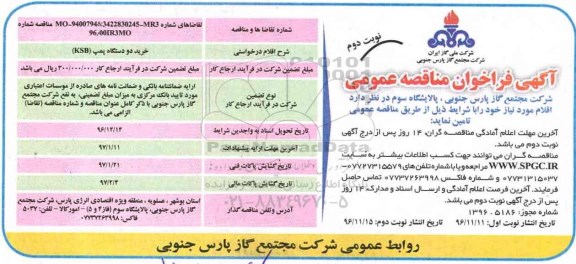 نوبت دوم
شرکت ملی گاز ایران
شرکت مجتمع گاز پارس جنوبی
آگهی فراخوان مناقصه عمومی
شرکت مجتمع گاز پارس جنوبی ، پالایشگاه سوم در نظر دارد
اقلام مورد نیاز خود را با شرایط ذیل از طریق مناقصه عمومی
تامین نماید:
آخرین مهلت اعلام آمادگی مناقصه گران، ۱۴ روز پس از درج آگهی
نوبت دوم می باشد.
مناقصه گران می توانند جهت کسب اطلاعات بیشتر به سایت
WWW.SPGC.IR مراجعه و یا با شماره تلفن های ۰۷۷۲۷۳۱۵۵۷۹-
۰۷۷۳۱۳۱۵۰۳۷ و شماره فاکس ۰۷۷۳۷۲۶۳۹۹۸ تماس حاصل
فرمایند. آخرین فرصت اعلام آمادگی و ارسال اسناد و مدارک ۱۴ روز
پس از درج آگهی نوبت دوم می باشد.
شماره مجوز: ۱۳۹۶.۵۱۸۶
تاریخ انتشار نوبت اول: ۹۶/۱۱/۱۱ تاریخ انتشار نوبت دوم: ۹۶/۱۱/۱۵
شماره تقاضا ها و مناقصه
تقاضاهای شماره MO-9400794&3422830245-MR3 مناقصه شماره
96/00IR3MO
شرح اقلام درخواستی
خرید دو دستگاه پمپ (KSB)
مبلغ تضمین شرکت در فرآیند ارجاع کار
مبلغ تضمین شرکت در فرآیند ارجاع کار ۳۰۰/۰۰۰/۰۰۰ ریال می باشد
نوع تضمین
شرکت در فرآیند ارجاع کار
ارایه ضمانتنامه بانکی و ضمانت نامه های صادره از موسسات اعتباری
مورد تایید بانک مرکزی به میزان مبلغ تضمینی، به نفع شرکت مجتمع
گاز پارس جنوبی با ذکر کامل عنوان مناقصه و شماره مناقصه (تقاضا)
الزامی می باشد.
تاریخ تحویل اسناد به واجدین شرایط
۹۶/۱۲/۱۴
آخرین مهلت ارایه پیشنهادات
۹۷/۱/۱۱
تاریخ گشایش پاکات فنی
۹۷/۱/۲۱
تاریخ گشایش پاکات مالی
۹۷/۲/۲
آدرس وتلفن مناقصه گذار
استان بوشهر، عسلویه، منطقه ویژه اقتصادی انرژی پارس، شرکت مجتمع
گاز پارس جنوبی، پالایشگاه سوم (فاز۴ و ۵) - امورکالا - تلفن: ۵۰۳۷
فاکس: ۰۷۷۳۷۲۶۳۹۹۸
۰۲۱-۸۸۳۴۹۶۷۰-۵
روابط عمومی شرکت مجتمع گاز پارس جنوبی